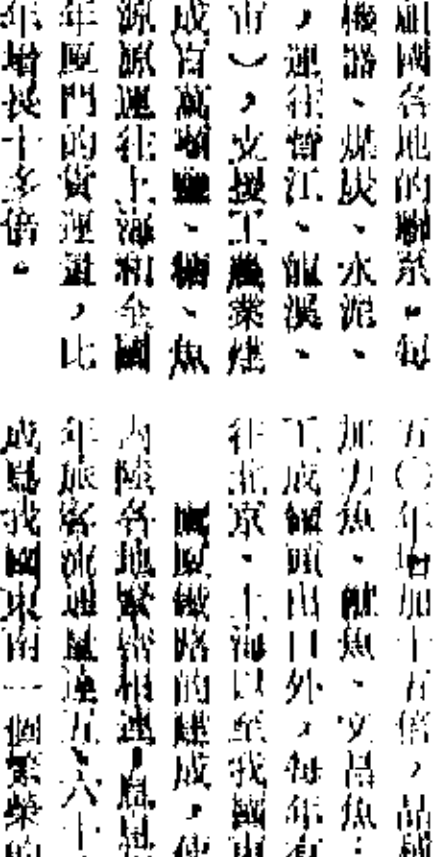 祖國各地的聯系。每
機器、煤炭、水泥、
，運往晉江、龍溪、
市），支援工農業建
成百萬噸鹽、糖、魚
源源運往上海和全國
年厦門的貨運量，比
年增長十多倍。
五〇年增加十五倍，品種
加力魚、魷魚、文昌魚
工成罐頭出口外，每年有
往北京、上海以至我國東
鷹厦鐵路的建成，使
內陸各地緊密相連，
年旅客流 達五、六十
成爲我國東南一個繁榮的